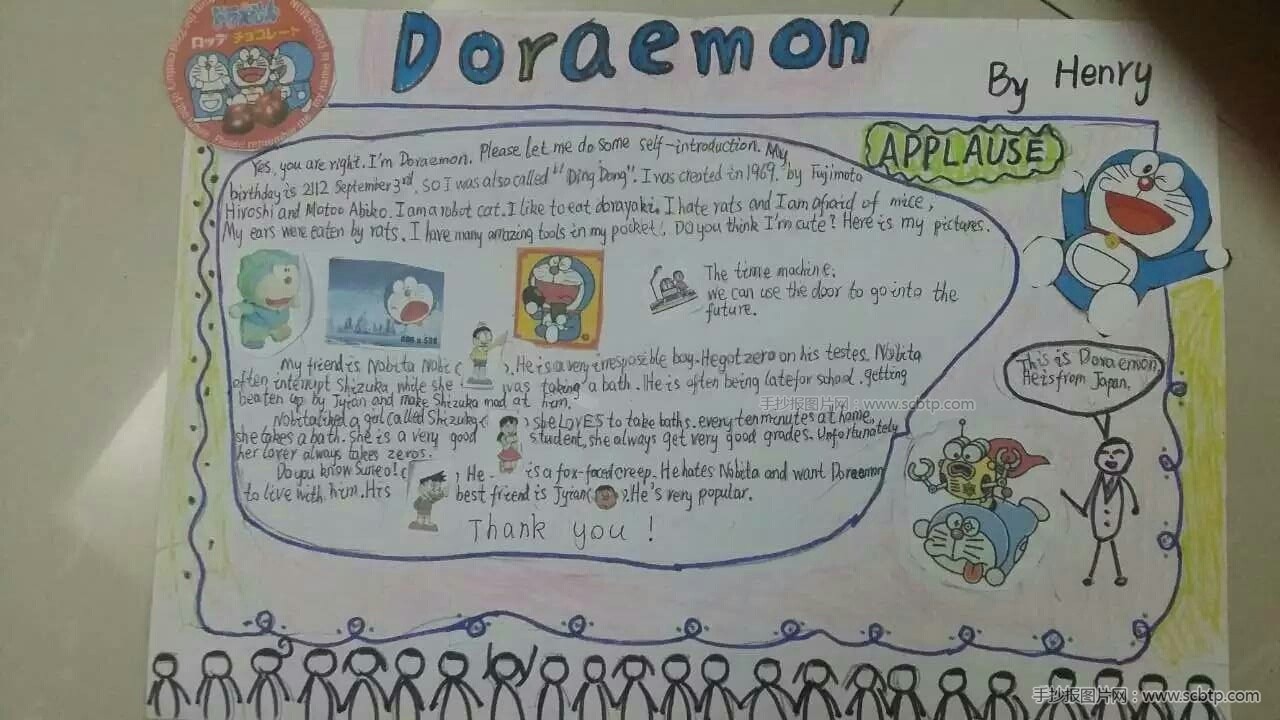 ドラえもん
ロッテ チョコレート
Doraemon
By Henry
APPLAUSE
Yes, you are right. I'm Doraemon. Please let me do some self-introduction. My
birthday is 2112 September 3rd. So I was also called "Ding Dong". I was created in 1969. by Fujimoto
Hiroshi and Motoo Abiko. I am a robot cat. I like to eat dorayaki. I hate rats and I am afraid of mice,
My ears were eaten by rats. I have many amazing tools in my pocket. Do you think I'm cute? Here is my pictures.
The time machine.
we can use the door to go into the
future.
My friend is Nobita Nobi ( ). He is a very irresposible boy. He got zero on his testes. Nobita
often interrupt Shizuka while she was taking a bath. He is often being late for school. getting
beaten up by Jyian and make Shizuka mad at him.
Nobita liked a girl called Shizuka( ) she LOVES to take baths. every ten minutes at home,
she takes a bath. She is a very good student, she always get very good grades. Unfortunately
her lover always takes zeros.
Do you know Suneo! ( ), He is a fox-faced creep. He hates Nobita and want Doraemon
to live with him. His best friend is Jyian( ). He's very popular.
Thank you !
This is Doraemon.
He is from Japan.
手抄报图片网：www.scbtp.com
手抄报图片网：www.scbtp.com